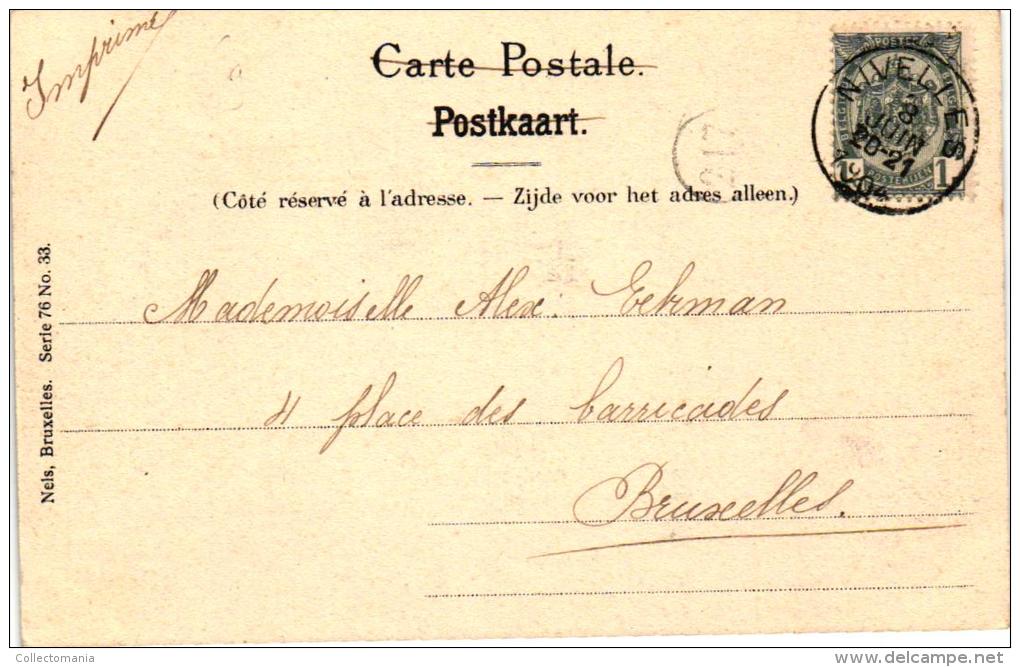 Imprimé
Carte Postale.
Postkaart.
(Côté réservé à l'adresse. — Zijde voor het adres alleen.)
NIVELLES
8
JUIN
20-21
1904
1
Mademoiselle Alex. Eekman
4 place des barricades
Bruxelles.
Nels, Bruxelles. Serie 76 No. 33.
Collectomania
delcampe.net